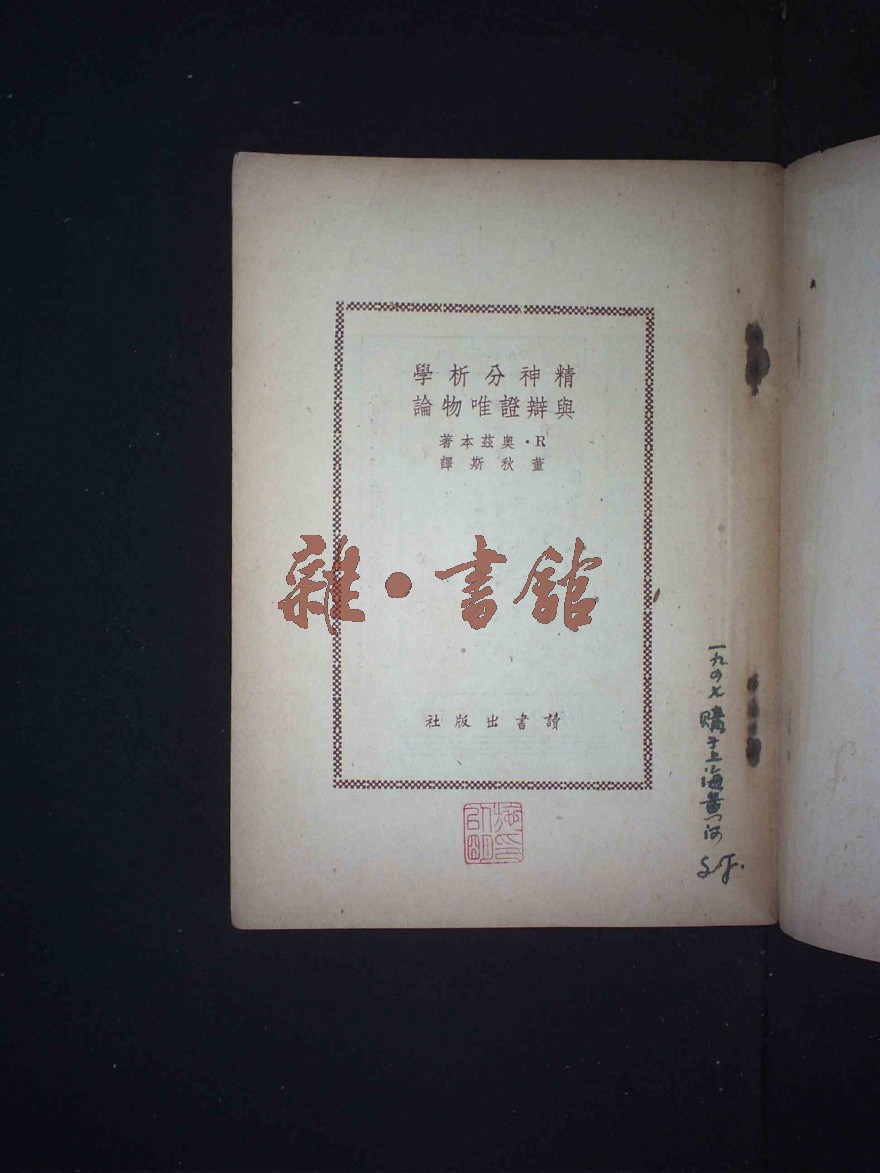 精神分析學
與辯證唯物論
R·奧茲本著
董秋斯譯
雜·書館
讀書出版社
一九四七購于上海黃河
S.J.